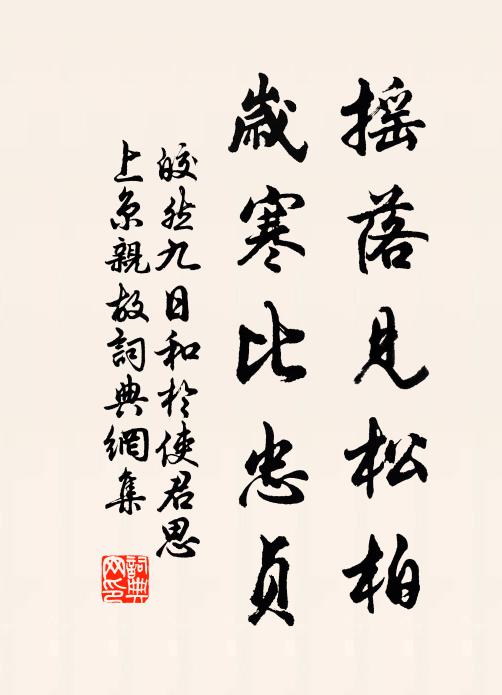 摇落見松柏
歲寒比忠貞
皎然九日和於使君思
上京親故詞典網集
詞典網印